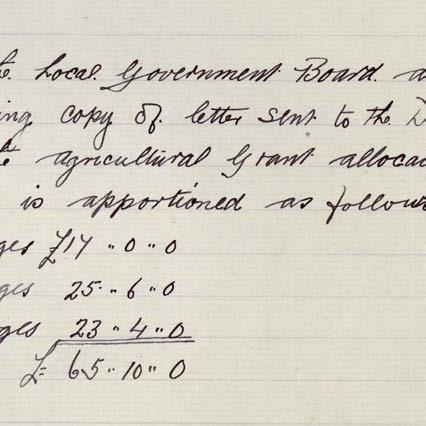 the Local Government Board a
ing copy of letter sent to the D
e agricultural Grant alloca
is apportioned as follows
ges £17 " 0 " 0
ges 25 " 6 " 0
ges 23 " 4 " 0
£ = 65 " 10 " 0